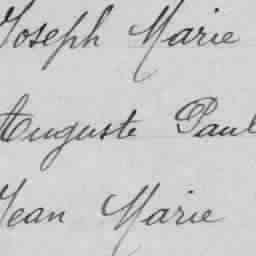 Joseph Marie
Auguste Paul
Jean Marie